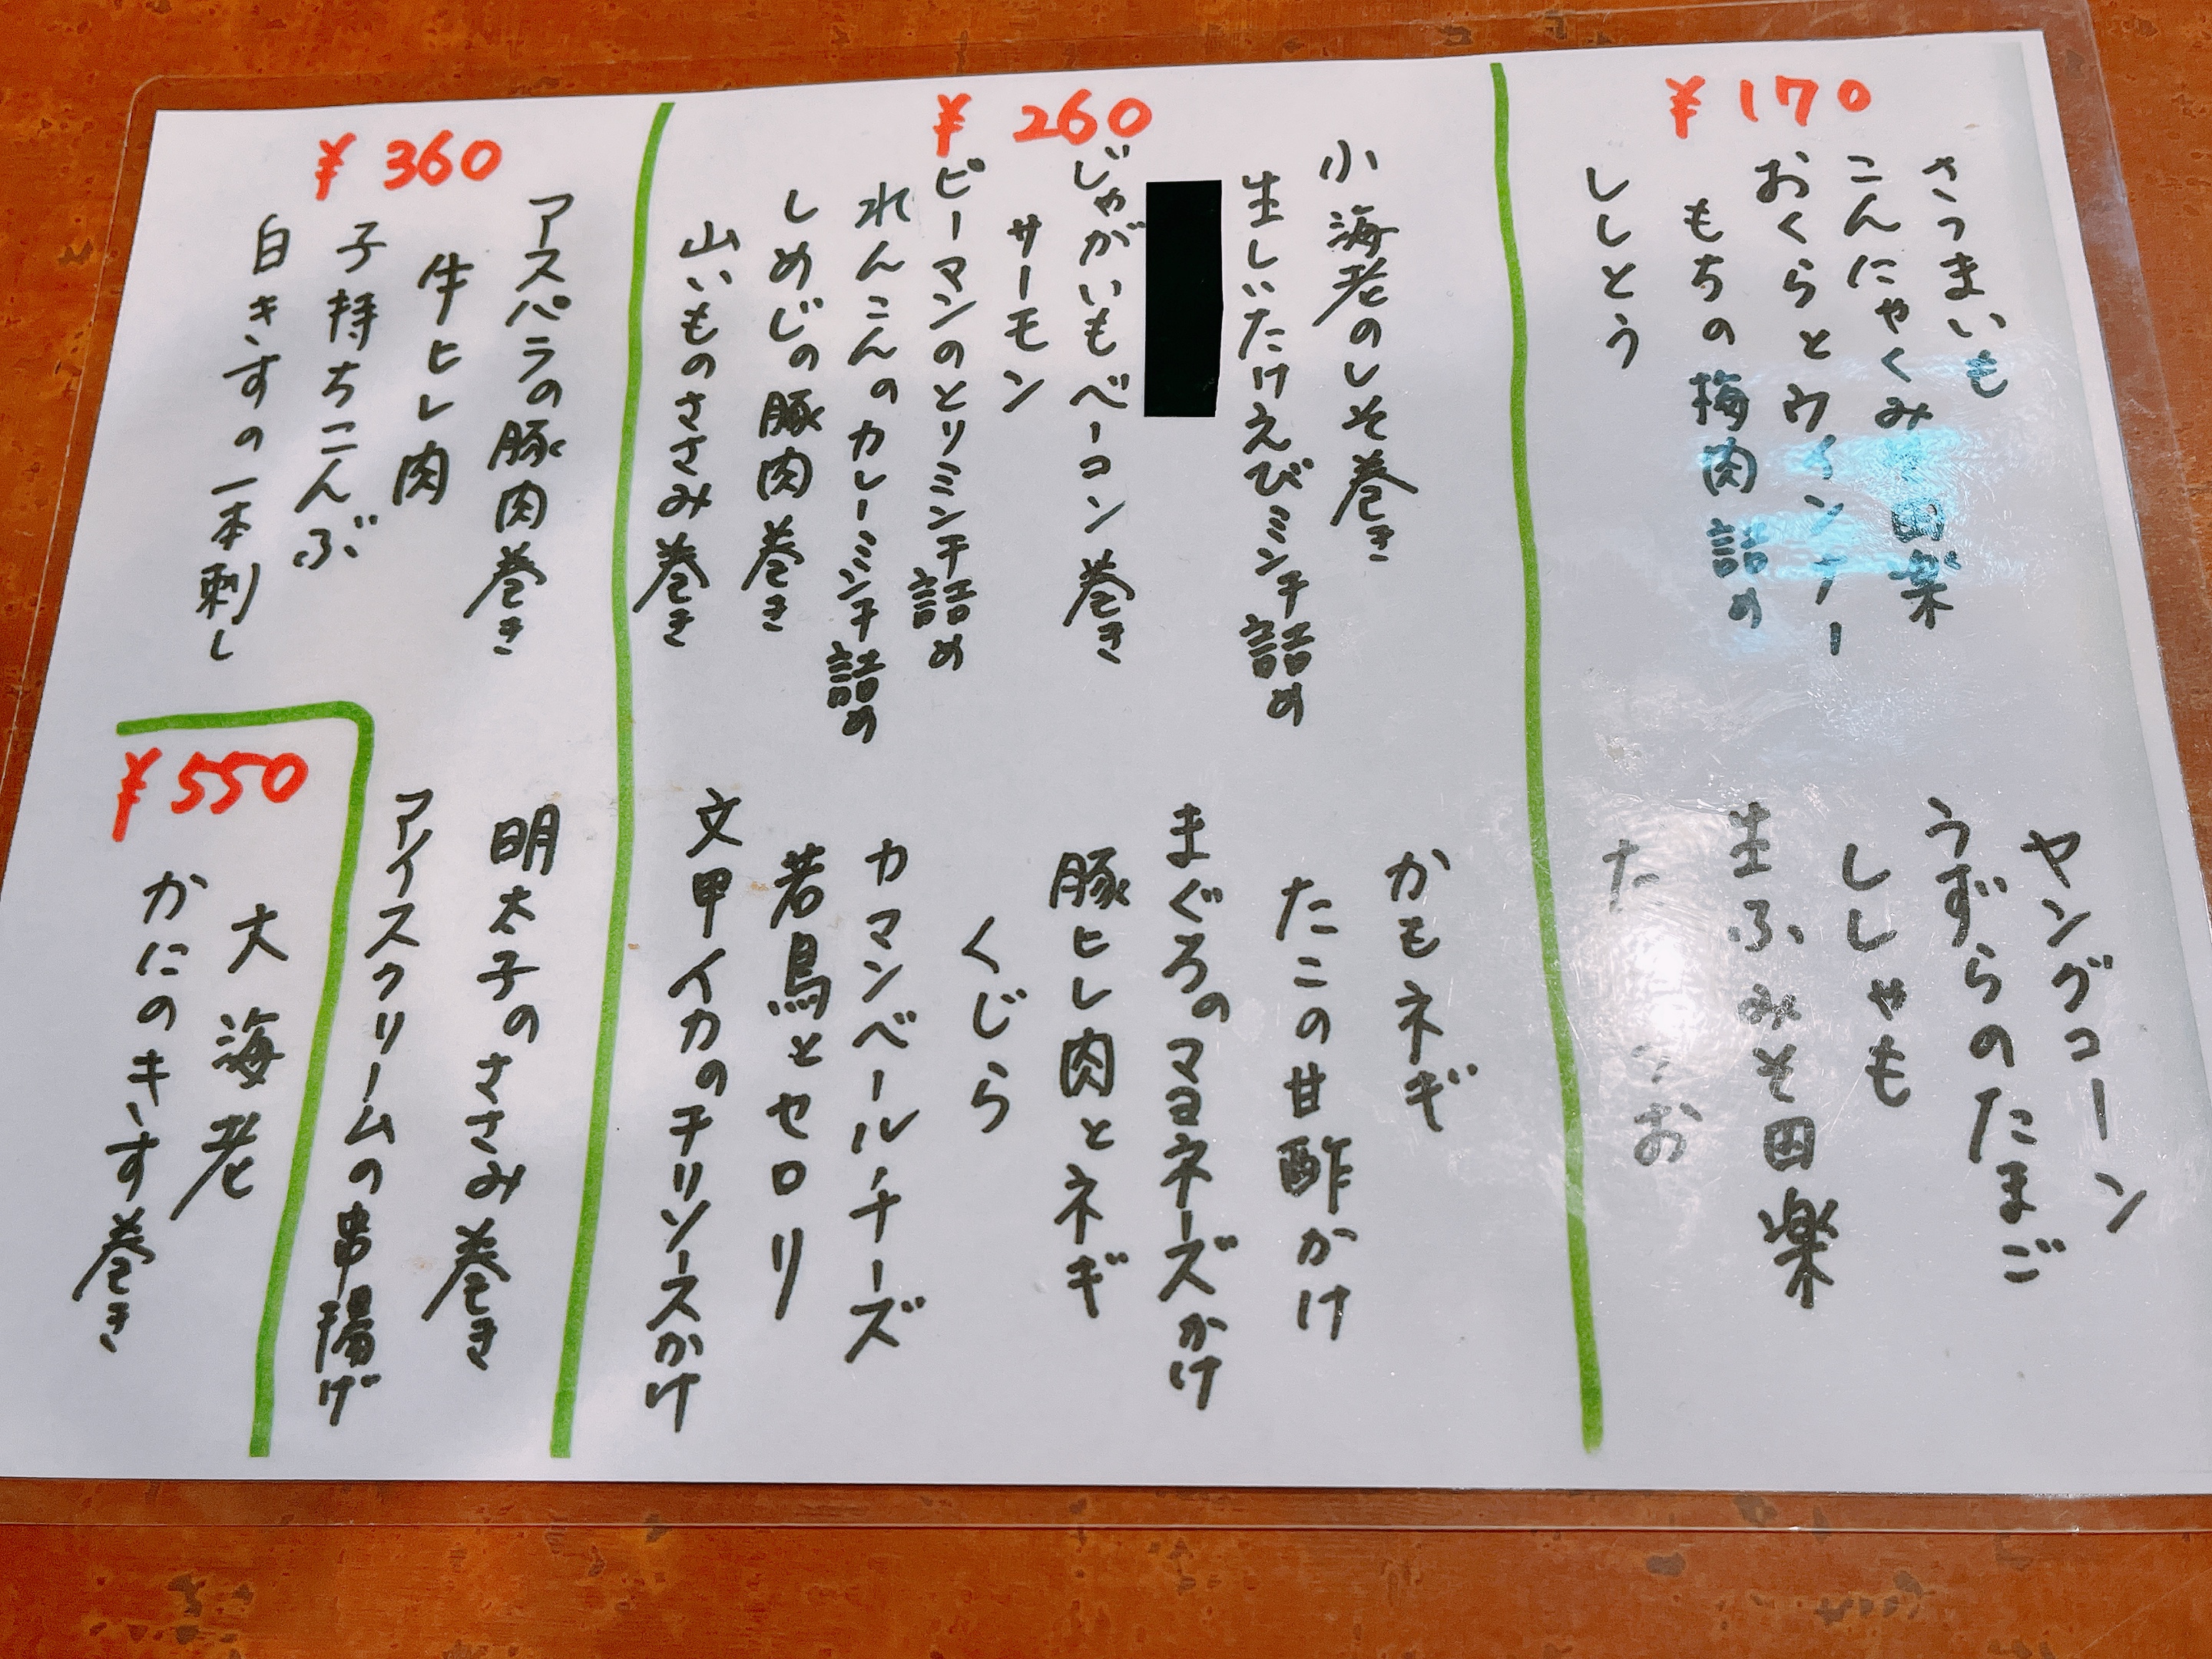 ¥170
さつまいも
こんにゃくみそ田楽
おくらとウインナー
もちの梅肉詰め
ししとう
ヤングコーン
うずらのたまご
ししゃも
生ふみそ田楽
¥260
小海老のしそ巻き
生しいたけえびミンチ詰め
じゃがいもベーコン巻き
サーモン
ピーマンのとりミンチ詰め
れんこんのカレーミンチ詰め
しめじの豚肉巻き
山いものささみ巻き
かもネギ
たこの甘酢かけ
まぐろのマヨネーズかけ
豚ヒレ肉とネギ
くじら
カマンベール・チーズ
若鳥とセロリ
文甲イカのチリソースかけ
¥360
アスパラの豚肉巻き
牛ヒレ肉
子持ちこんぶ
白きすの一本刺し
明太子のささみ巻き
アイスクリームの串揚げ
¥550
大海老
かにのキす巻き